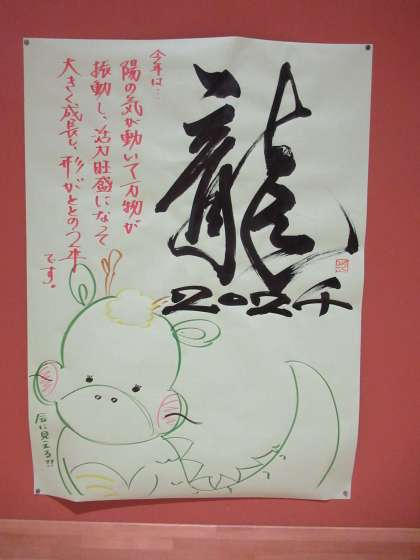 龍
2024
今年は…
陽の気が動いて万物が
振動し、活力旺盛になって
大きく成長し、形がととのう年
です。
辰に見える!!